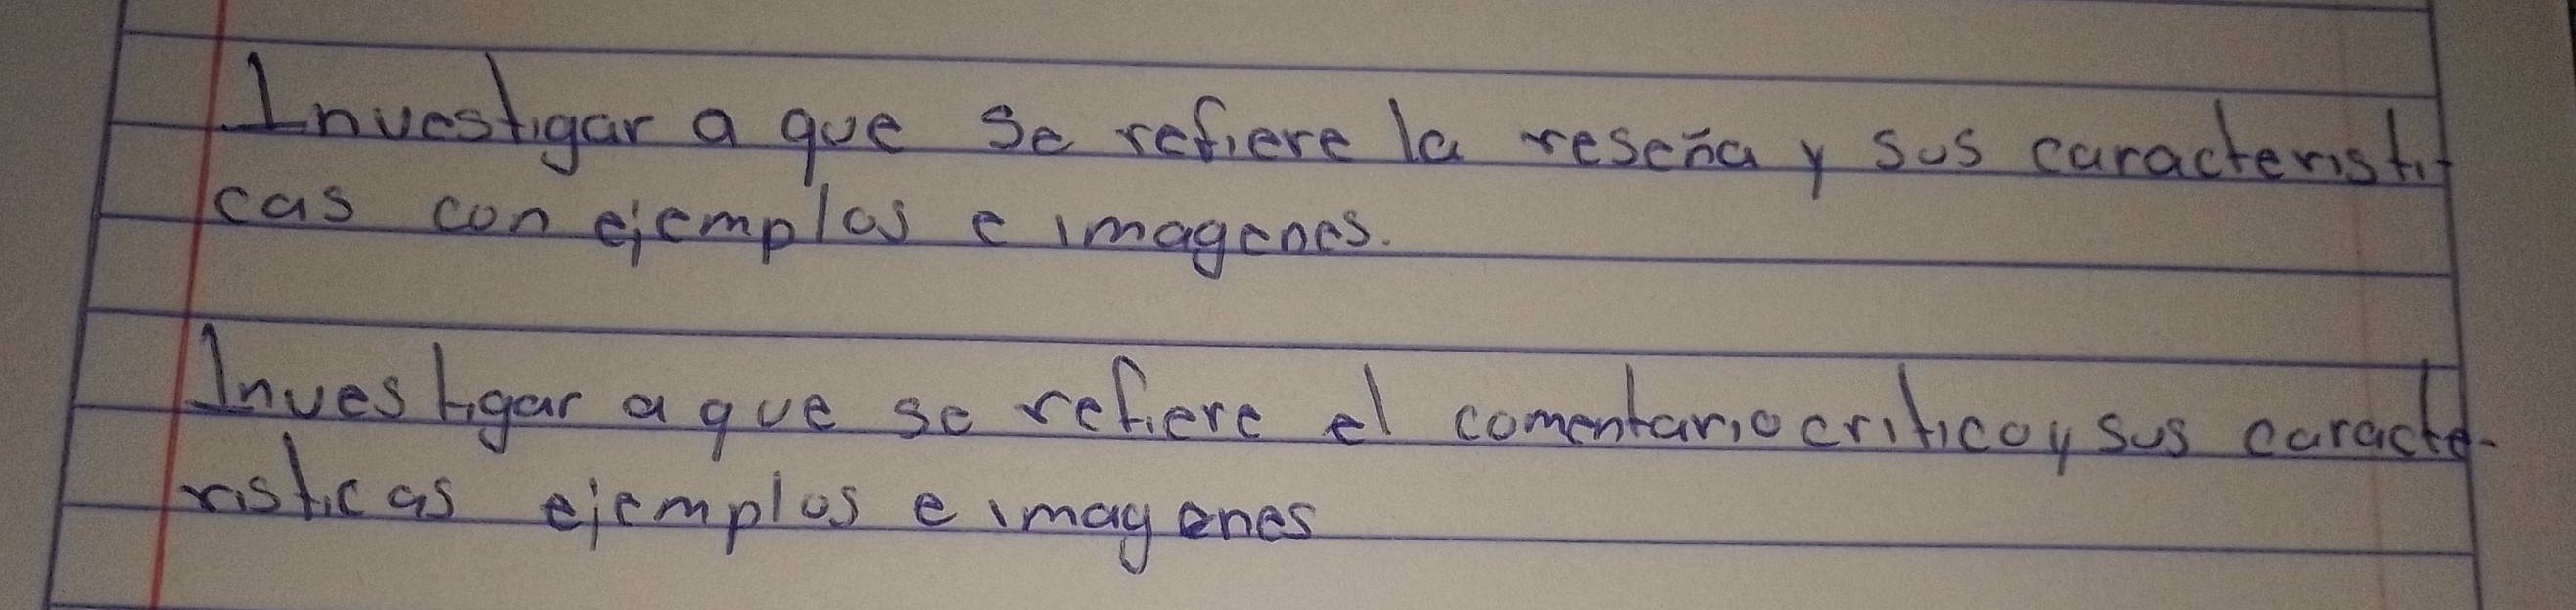 Investigar a que se refiere la reseña y sus caracteristi-
cas con ejemplos e imagenes.
Investigar a que se refiere el comentario critico y sus caracte-
risticas ejemplos e imagenes